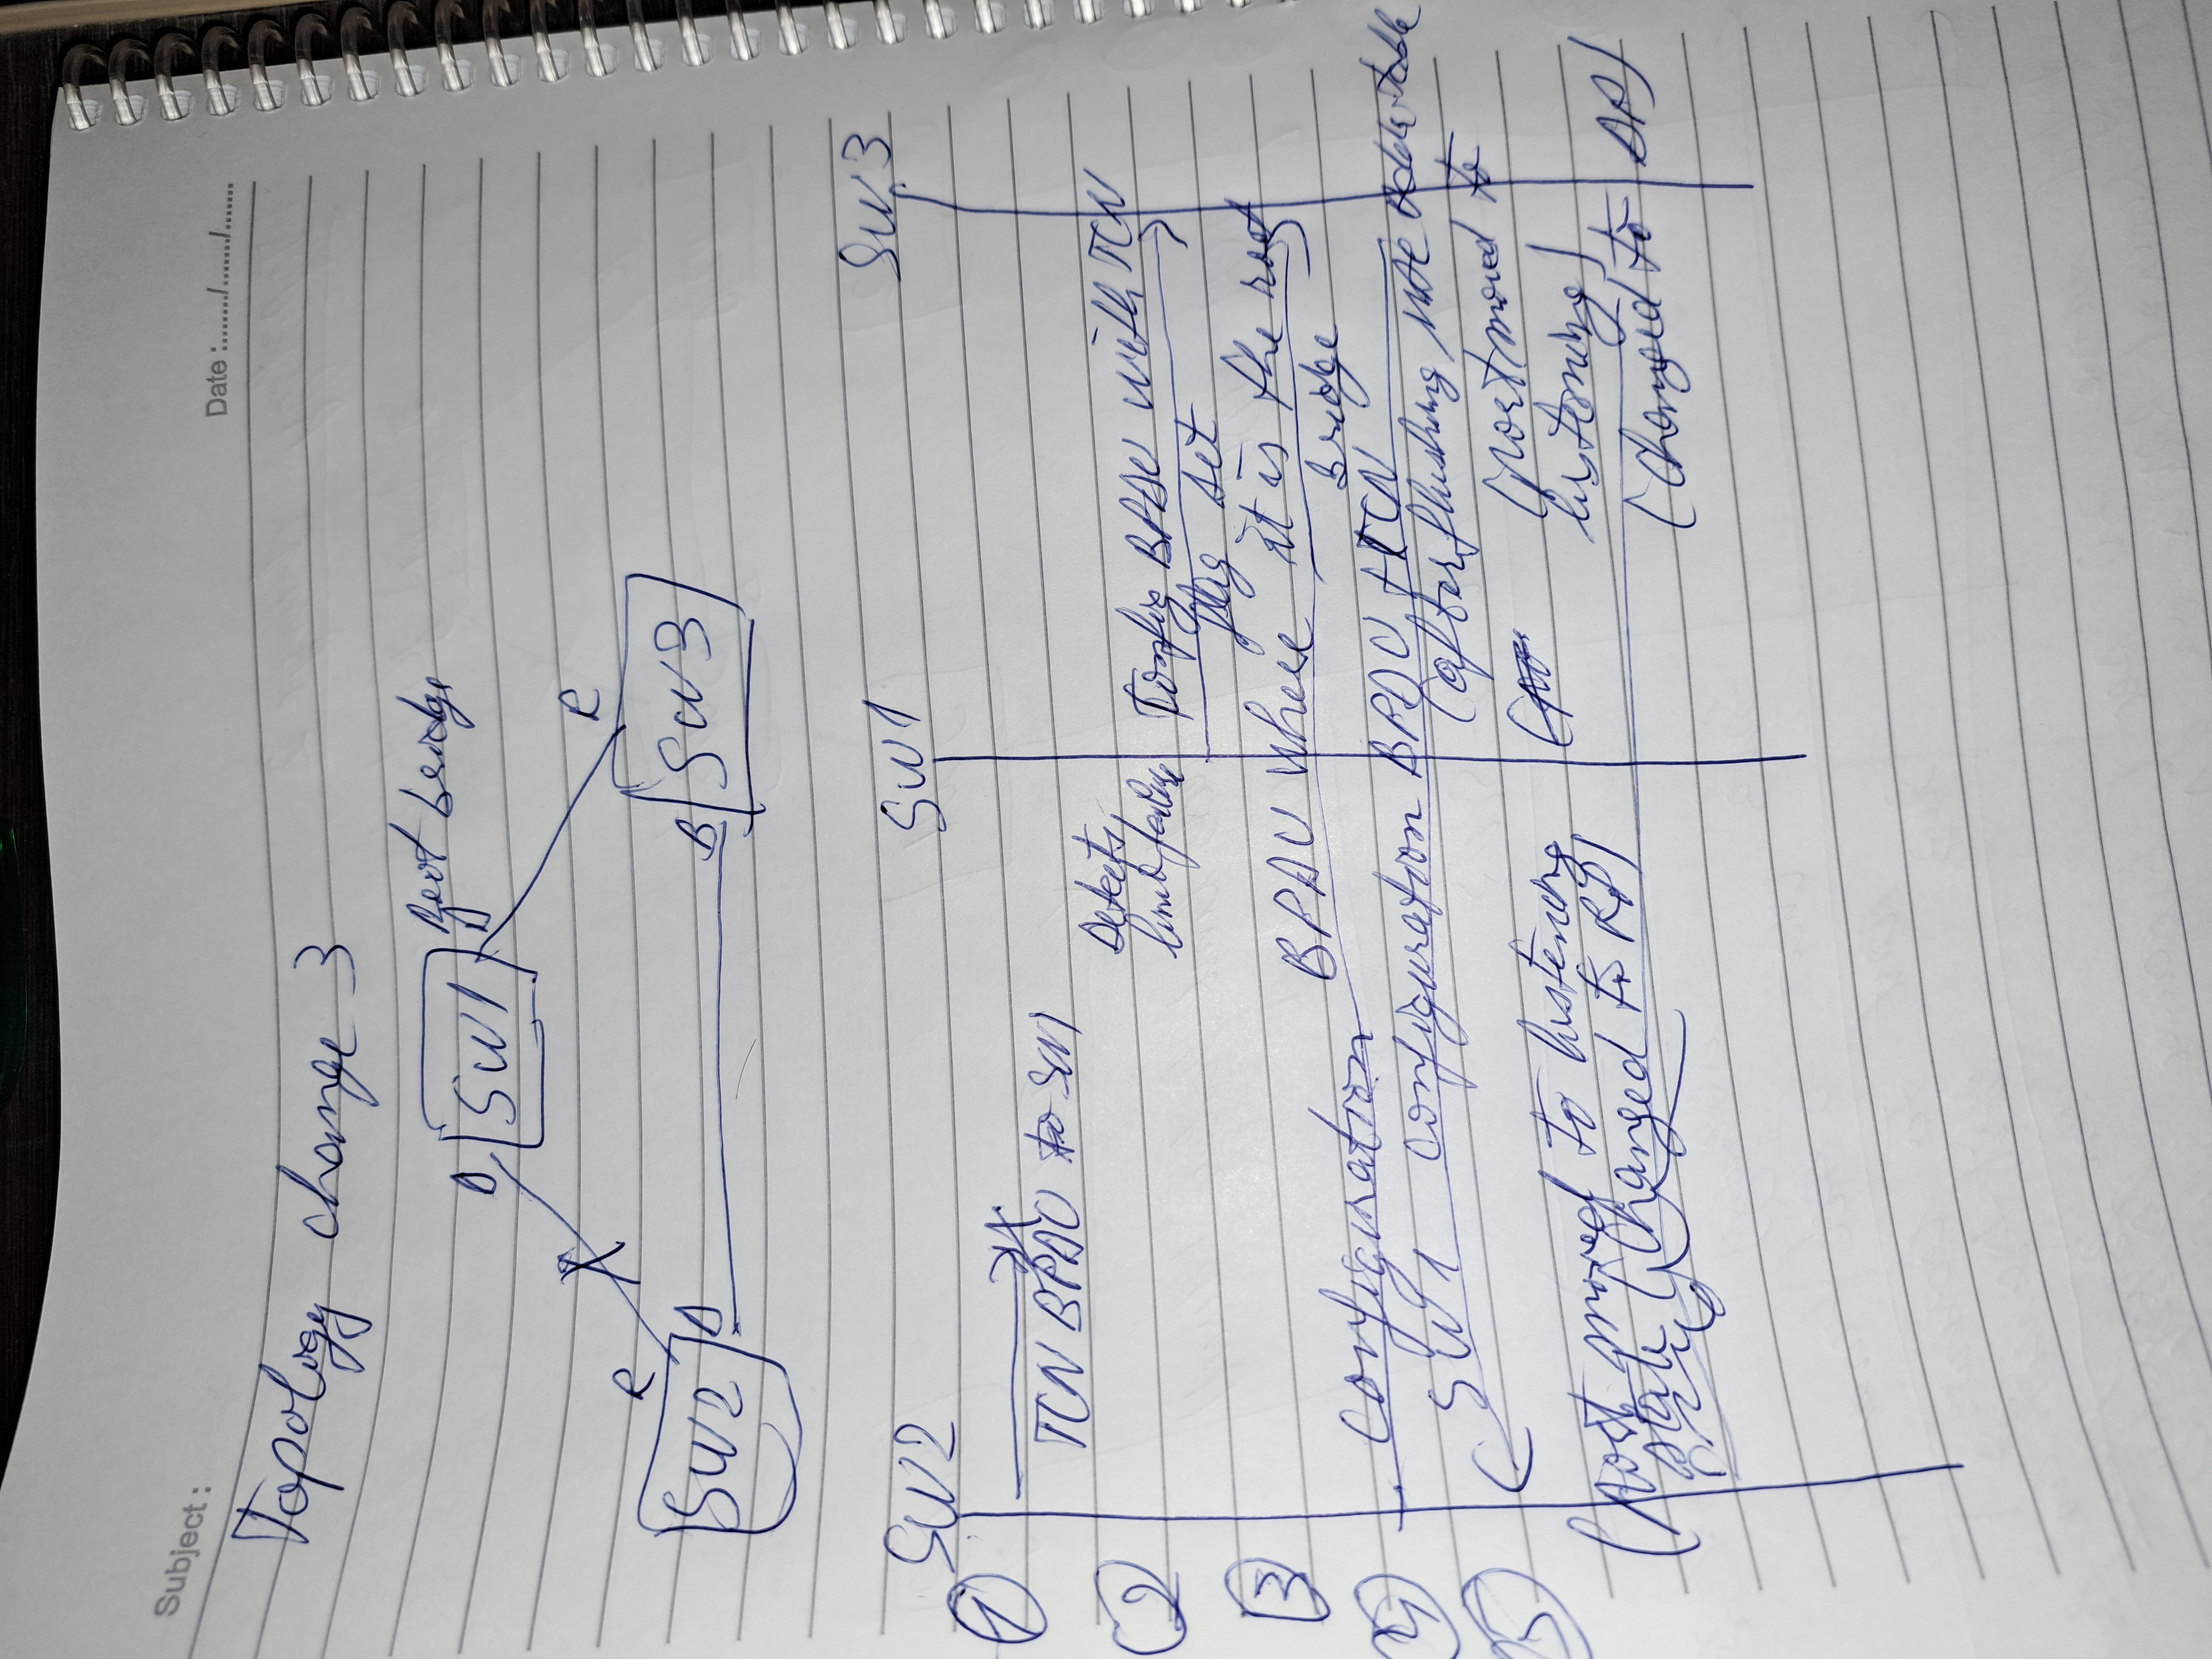 Subject :
Date :......../......../........
Topology change 3
Root bridge
D SW1 D
R
R
SW2 D
B SW3
SW2 SW1 SW3
1
TCN BPDU to SW1
2
Detects link failure
Config BPDU with TCN
flag set
3
configuration BPDU where it is the root
bridge
4
SW1 configuration BPDU + TCN
(after flushing MAC table
5
(port moved to listening
state (Changed to RP)
(port moved to
listening)
(Changed to DP)